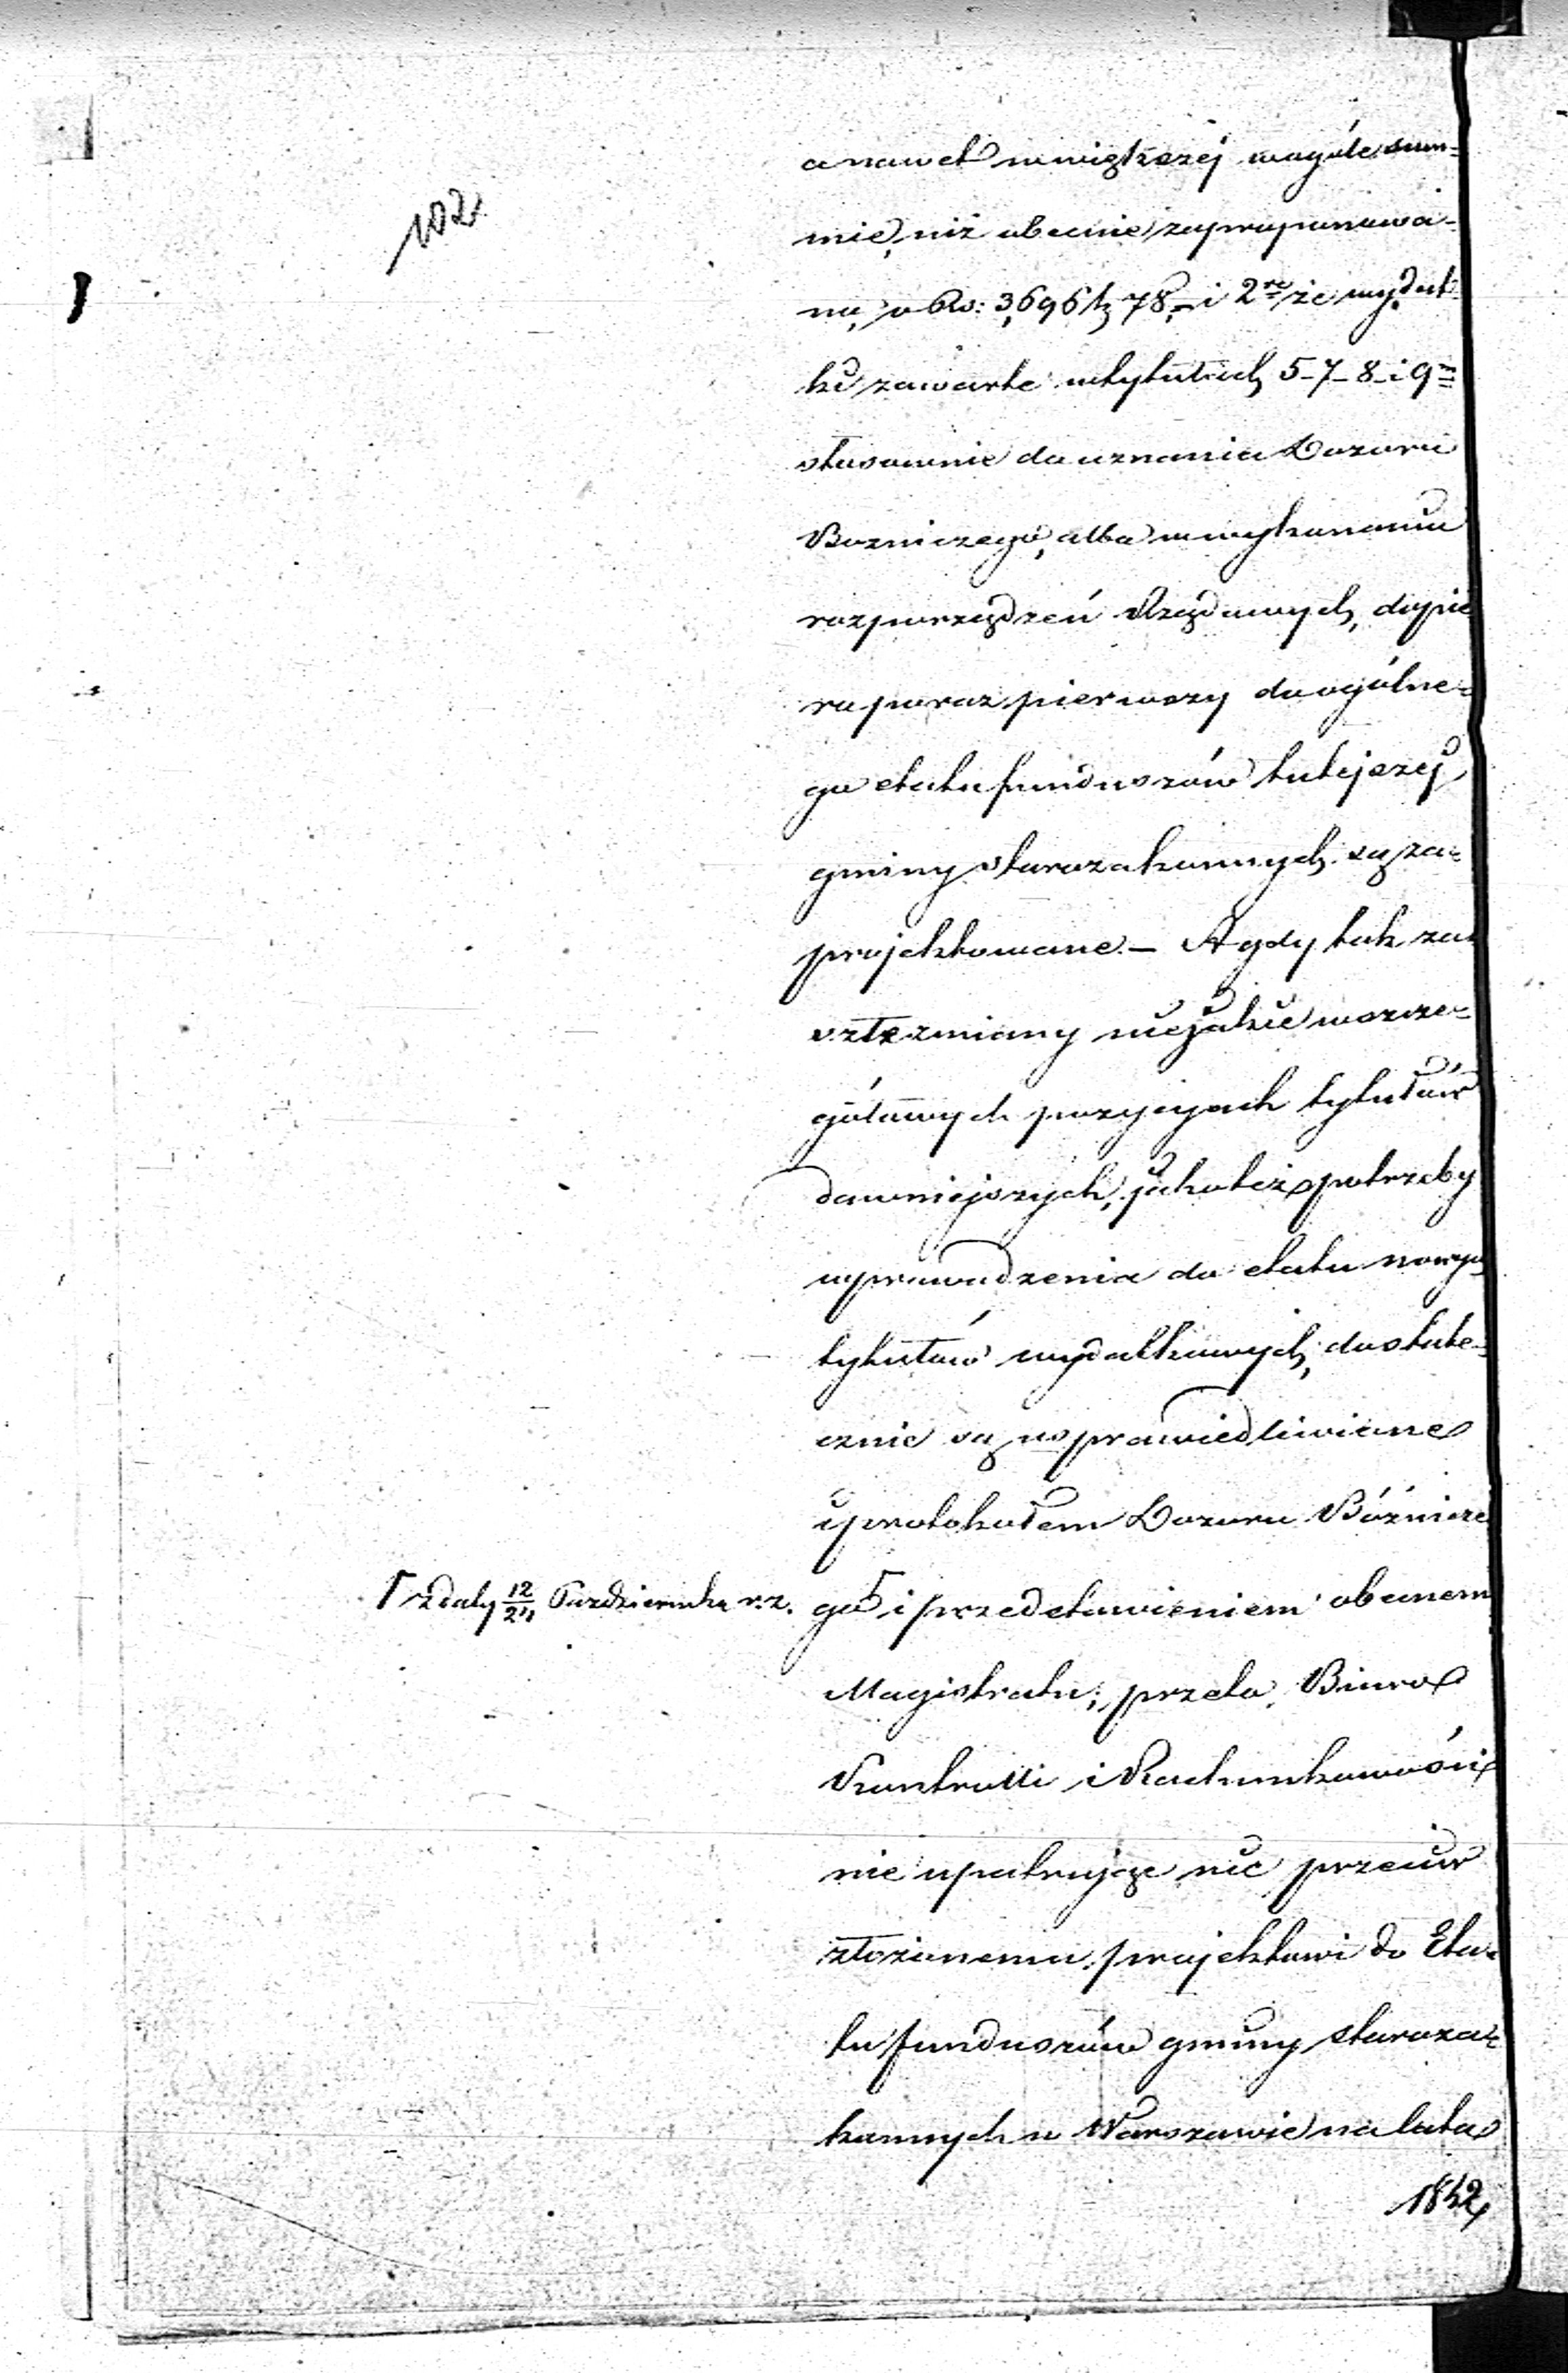 102.
a nawet w większéj wogóle sum-
mie, niż obecnie zaproponowa-
no, o Rs: 3,696 k 78,- i 2re że wydat
ki zawarte w tytułach 5-7-8- i 9m
stosownie do uznania Dozoru
Bozniczego, albo w wykonaniu
rozporządzeń Rządowych, dopie
ro poraz pierwszy do ogólne-
go etatu funduszów tutejszéj
gminy starozakonnych są za-
projektowane. - A gdy tak za
szłe zmiany niejakie w szcze-
gółowych pozycyach tytułów
dawniejszych, jakoteż potrzeby
wprowadzenia do etatu nowych
tytułów wydatkowych, dostate-
cznie są usprawiedliwione
i protokołem Dozoru Bóźnicze
go Γ i przedstawieniem obecnem
Γ z daty 12/24 Października r. z.
Magistratu; przeto, Biuro
Kontrolli i Rachunkowości
nie upatrując nic przeciw
złożonemu projektowi do Eta-
tu funduszów gminy staroza-
konnych w Warszawie na lata
1842,